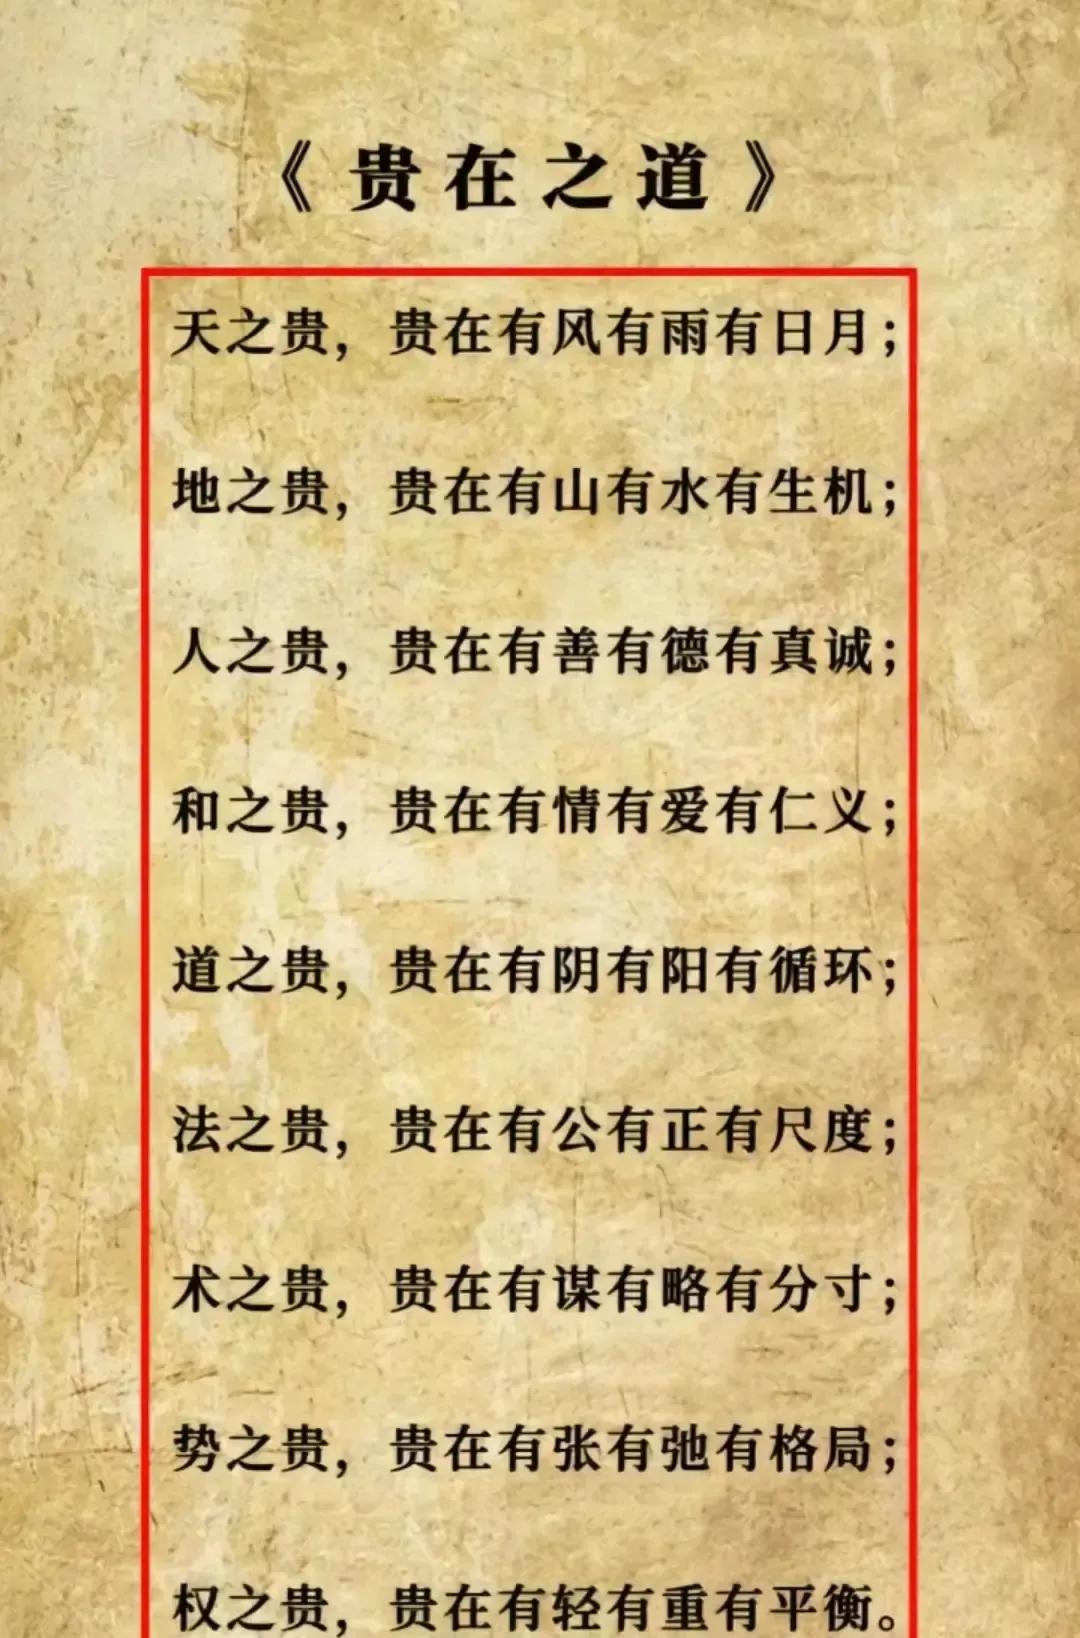 《贵在之道》
天之贵，贵在有风有雨有日月；
地之贵，贵在有山有水有生机；
人之贵，贵在有善有德有真诚；
和之贵，贵在有情有爱有仁义；
道之贵，贵在有阴有阳有循环；
法之贵，贵在有公有正有尺度；
术之贵，贵在有谋有略有分寸；
势之贵，贵在有张有弛有格局；
权之贵，贵在有轻有重有平衡。